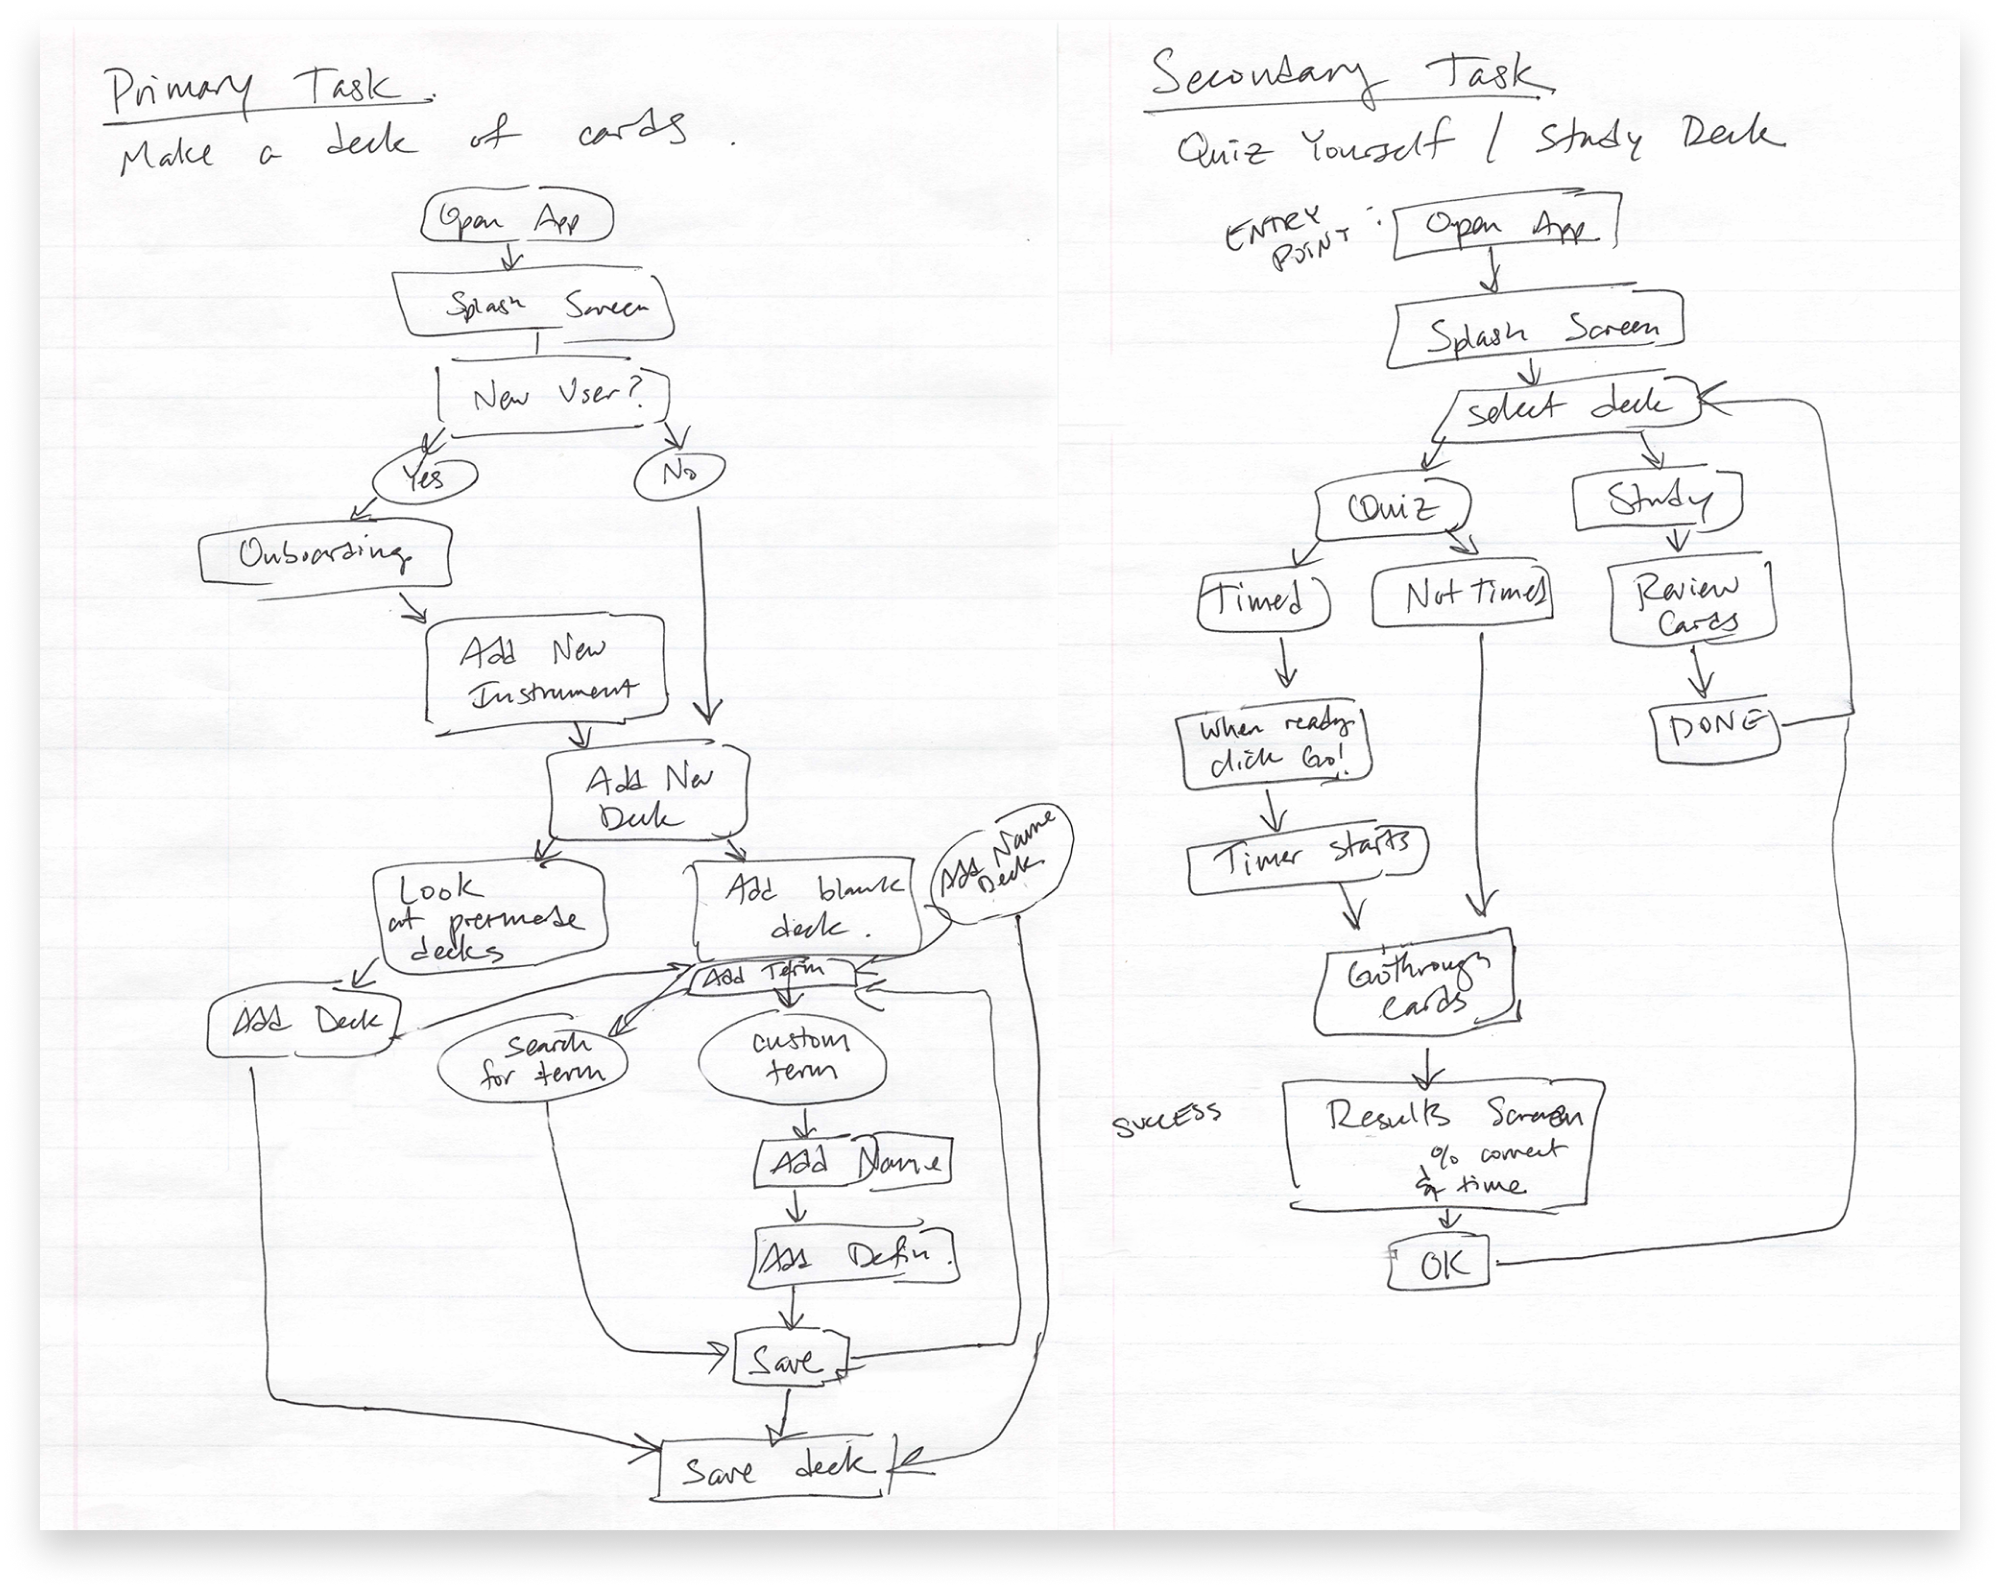 Primary Task.
Make a deck of cards.
Open App
Splash Screen
New User?
Yes
No
Onboarding
Add New
Instrument
Add New
Deck
Look
at premade
decks
Add blank
deck.
Add Name
Deck
Add Deck
Add Term
Search
for term
custom
term
Add Name
Add Defin.
Save
Save deck
Secondary Task
Quiz Yourself / Study Deck
ENTRY
POINT :
Open App
Splash Screen
select deck
Quiz
Study
Timed
Not Timed
Review
Cards
When ready
click Go!
DONE
Timer starts
Go through
cards
SUCCESS
Results Screen
% correct
& time
OK